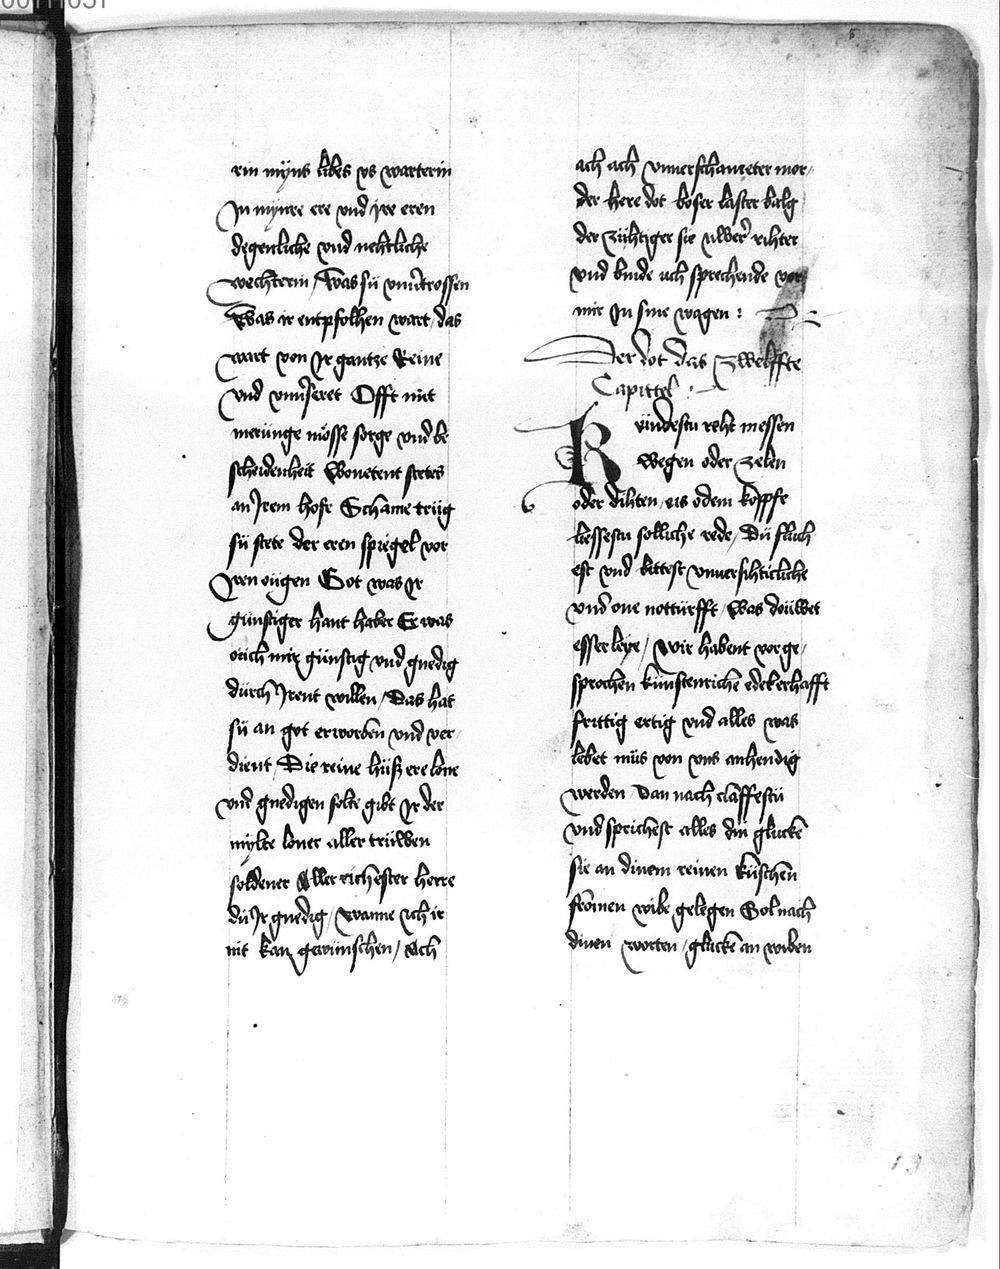 rin myns libes vs warterin
Jn mynre ere vnd Jre eren
degenliche vnd nehtliche
wechterin / Was sü vnuertrossen
Was ir entpfolhen wart / das
wart von Jr gantze Reine
vnd vnuerseret Offt mit
merünge mosse sorge vnd be
scheidenheit Wonetent stetes
an Jrem hofe Schame trüg
sü stete der eren spiegel vor
Jren oügen Got was Jr
günstiger hant haber Er was
oüch mir günstig vnd gnedig
dürch Jrent willen / Das hat
sü an got erworben vnd ver
dient / Die reine hüsz ere lone
vnd gnedigen solte gibt Jr der
mylte loner aller trüwen
soldener Aller richester herre
du Jr gnedig / wanne ich ir
nit kan gewünschen / Ach
ach ach vnuerschameter mor
der here dot boser laster balg
der zühtiger sie uwer rihter
vnd binde üch sprechende vor
mir Jn sine wagen :
Der dot das zwelffte
Capittel :
Kündestu reht messen
wegen oder zelen
oder dihten / us odem koppfe
liessestu solliche rede / Dü flüch
est vnd bittest vnuersihticliche
vnd one nottürfft / Was doüwet
esser leye / Wir habent vorge
sprochen künstenriche edekerhafft
frittig ertig vnd alles was
lebet müs von vns anhendig
werden / Dan nach claffestü
vnd sprichest alles din glücke
sie an dinem reinen küschen
fromen wibe gelegen Sol nach
dinen worten / glücke an wiben